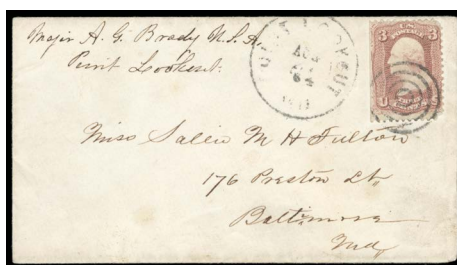 Major A. G. Brady U.S.A.
Point Lookout.
POINT LOOKOUT
AUG
64
MD
3 U.S. 3
POSTAGE
Miss Sallie M H Fulton
176 Preston St,
Baltimore
Md,